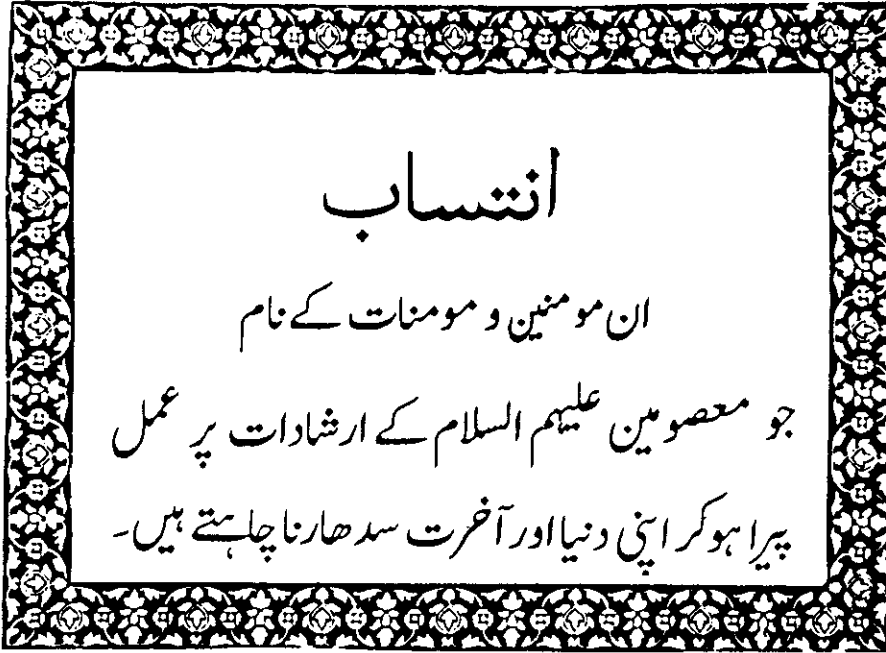 انتساب
ان مومنین و مومنات کے نام
جو معصومین علیہم السلام کے ارشادات پر عمل
پیرا ہوکر اپنی دنیا اور آخرت سدھارنا چاہتے ہیں۔